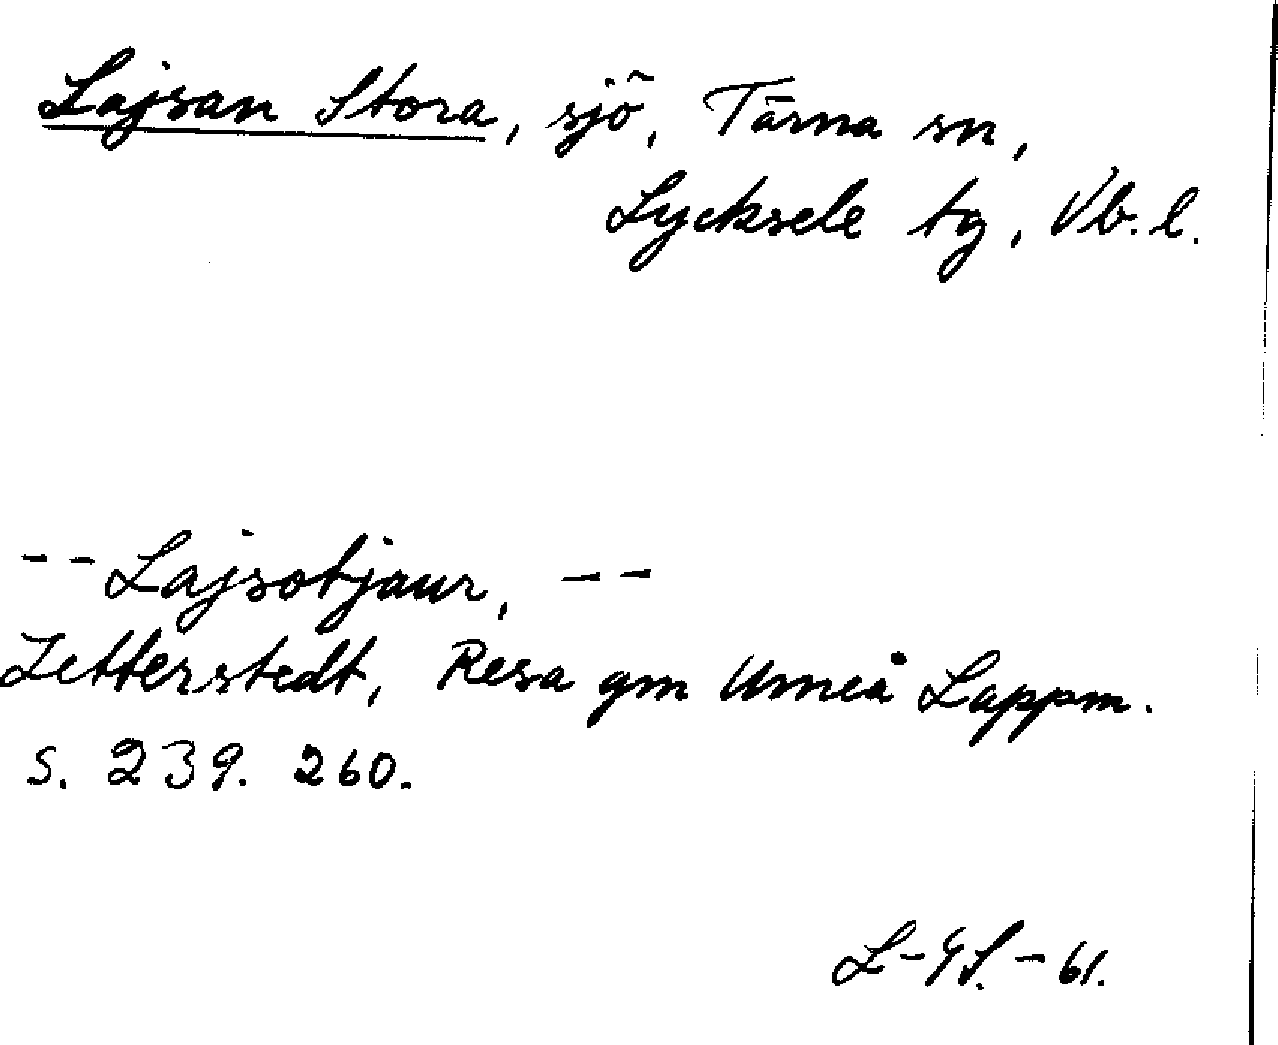 Lajsan Stora, sjö, Tärna sn,
Lycksele tg, Vb. l.
-- Lajsotjaur, --
Zetterstedt, Resa gm Umeå Lappm.
s. 239. 260.
L-YS.-61.